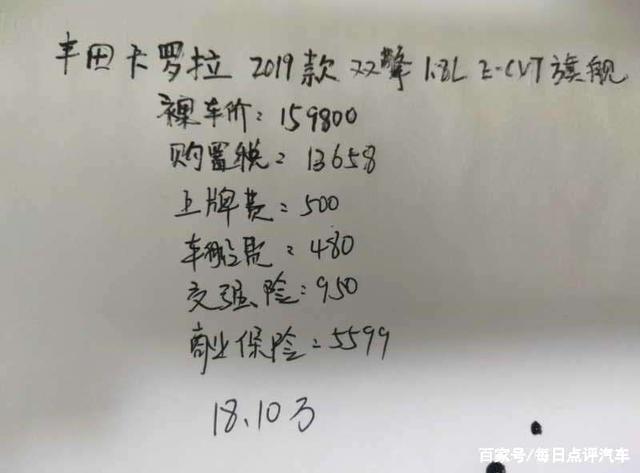 丰田卡罗拉 2019款 双擎 1.8L E-CVT旗舰
裸车价:159800
购置税:13658
上牌费:500
车船费:480
交强险:950
商业保险:5599
18.10万
百家号/每日点评汽车